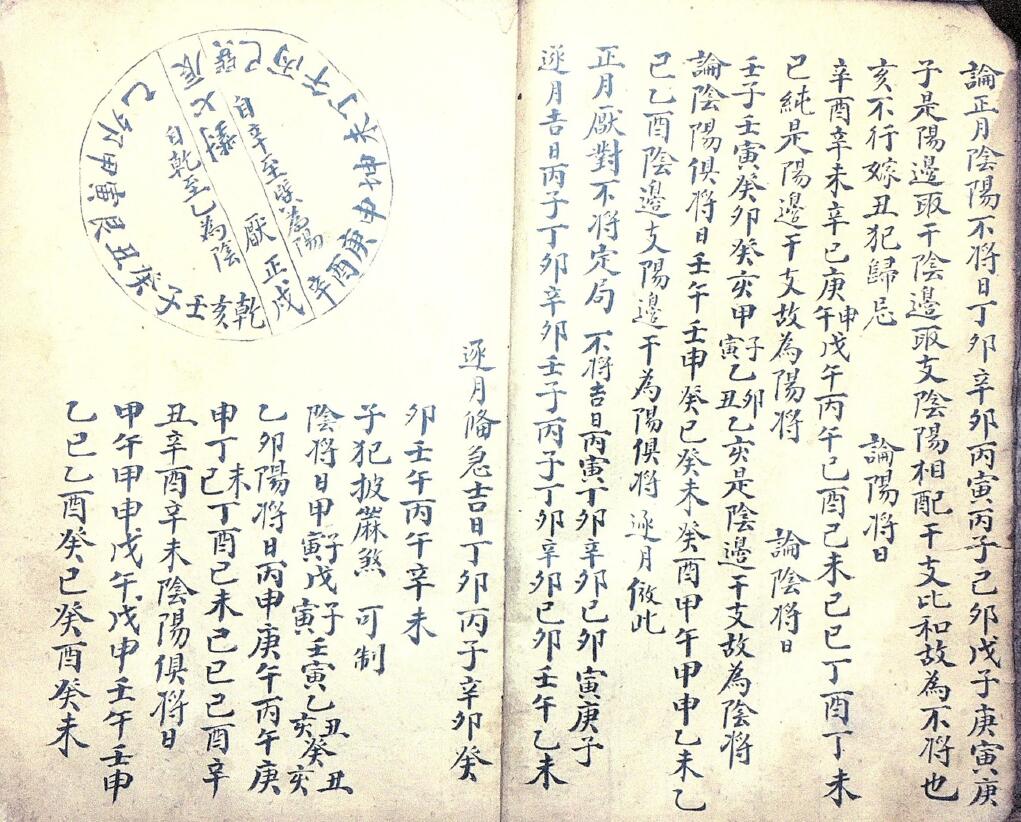 論正月陰陽不將日丁卯辛卯丙寅丙子己卯戊子庚寅庚
子是陽邊取干陰邊取支陰陽相配干支比和故為不將也
亥不行嫁丑犯歸忌
論陽將日
辛酉辛未辛巳庚午申戊午丙午己酉己未己巳丁酉丁未
巳純是陽邊干支故為陽將
論陰將日
壬子壬寅癸卯癸亥甲子寅乙卯丑乙亥是陰邊干支故為陰將
論陰陽俱將日壬午壬申癸巳癸未癸酉甲午甲申乙未乙
巳乙酉陰邊支陽邊干為陽俱將 逐月倣此
正月厭對不將定局 不將吉日丙寅丁卯辛卯己卯寅庚子
逐月吉日丙子丁卯辛卯壬子丙子丁卯辛卯己卯壬午乙未
逐月脩急吉日丁卯丙子辛卯癸
卯壬午丙午辛未
子犯披蔴煞 可制
陰將日甲子寅戊子寅壬寅乙丑亥癸丑亥
乙卯陽將日丙申庚午丙午庚
申丁未巳丁酉己未己巳己酉辛
丑辛酉辛未陰陽俱將日
甲午甲申戊午戊申壬午壬申
乙巳乙酉癸巳癸酉癸未
自辛至巽為陽
自乾至乙為陰
厭 正戌
辛酉庚申坤未丁午丙巳巽辰
乙卯甲寅艮丑癸子壬亥乾